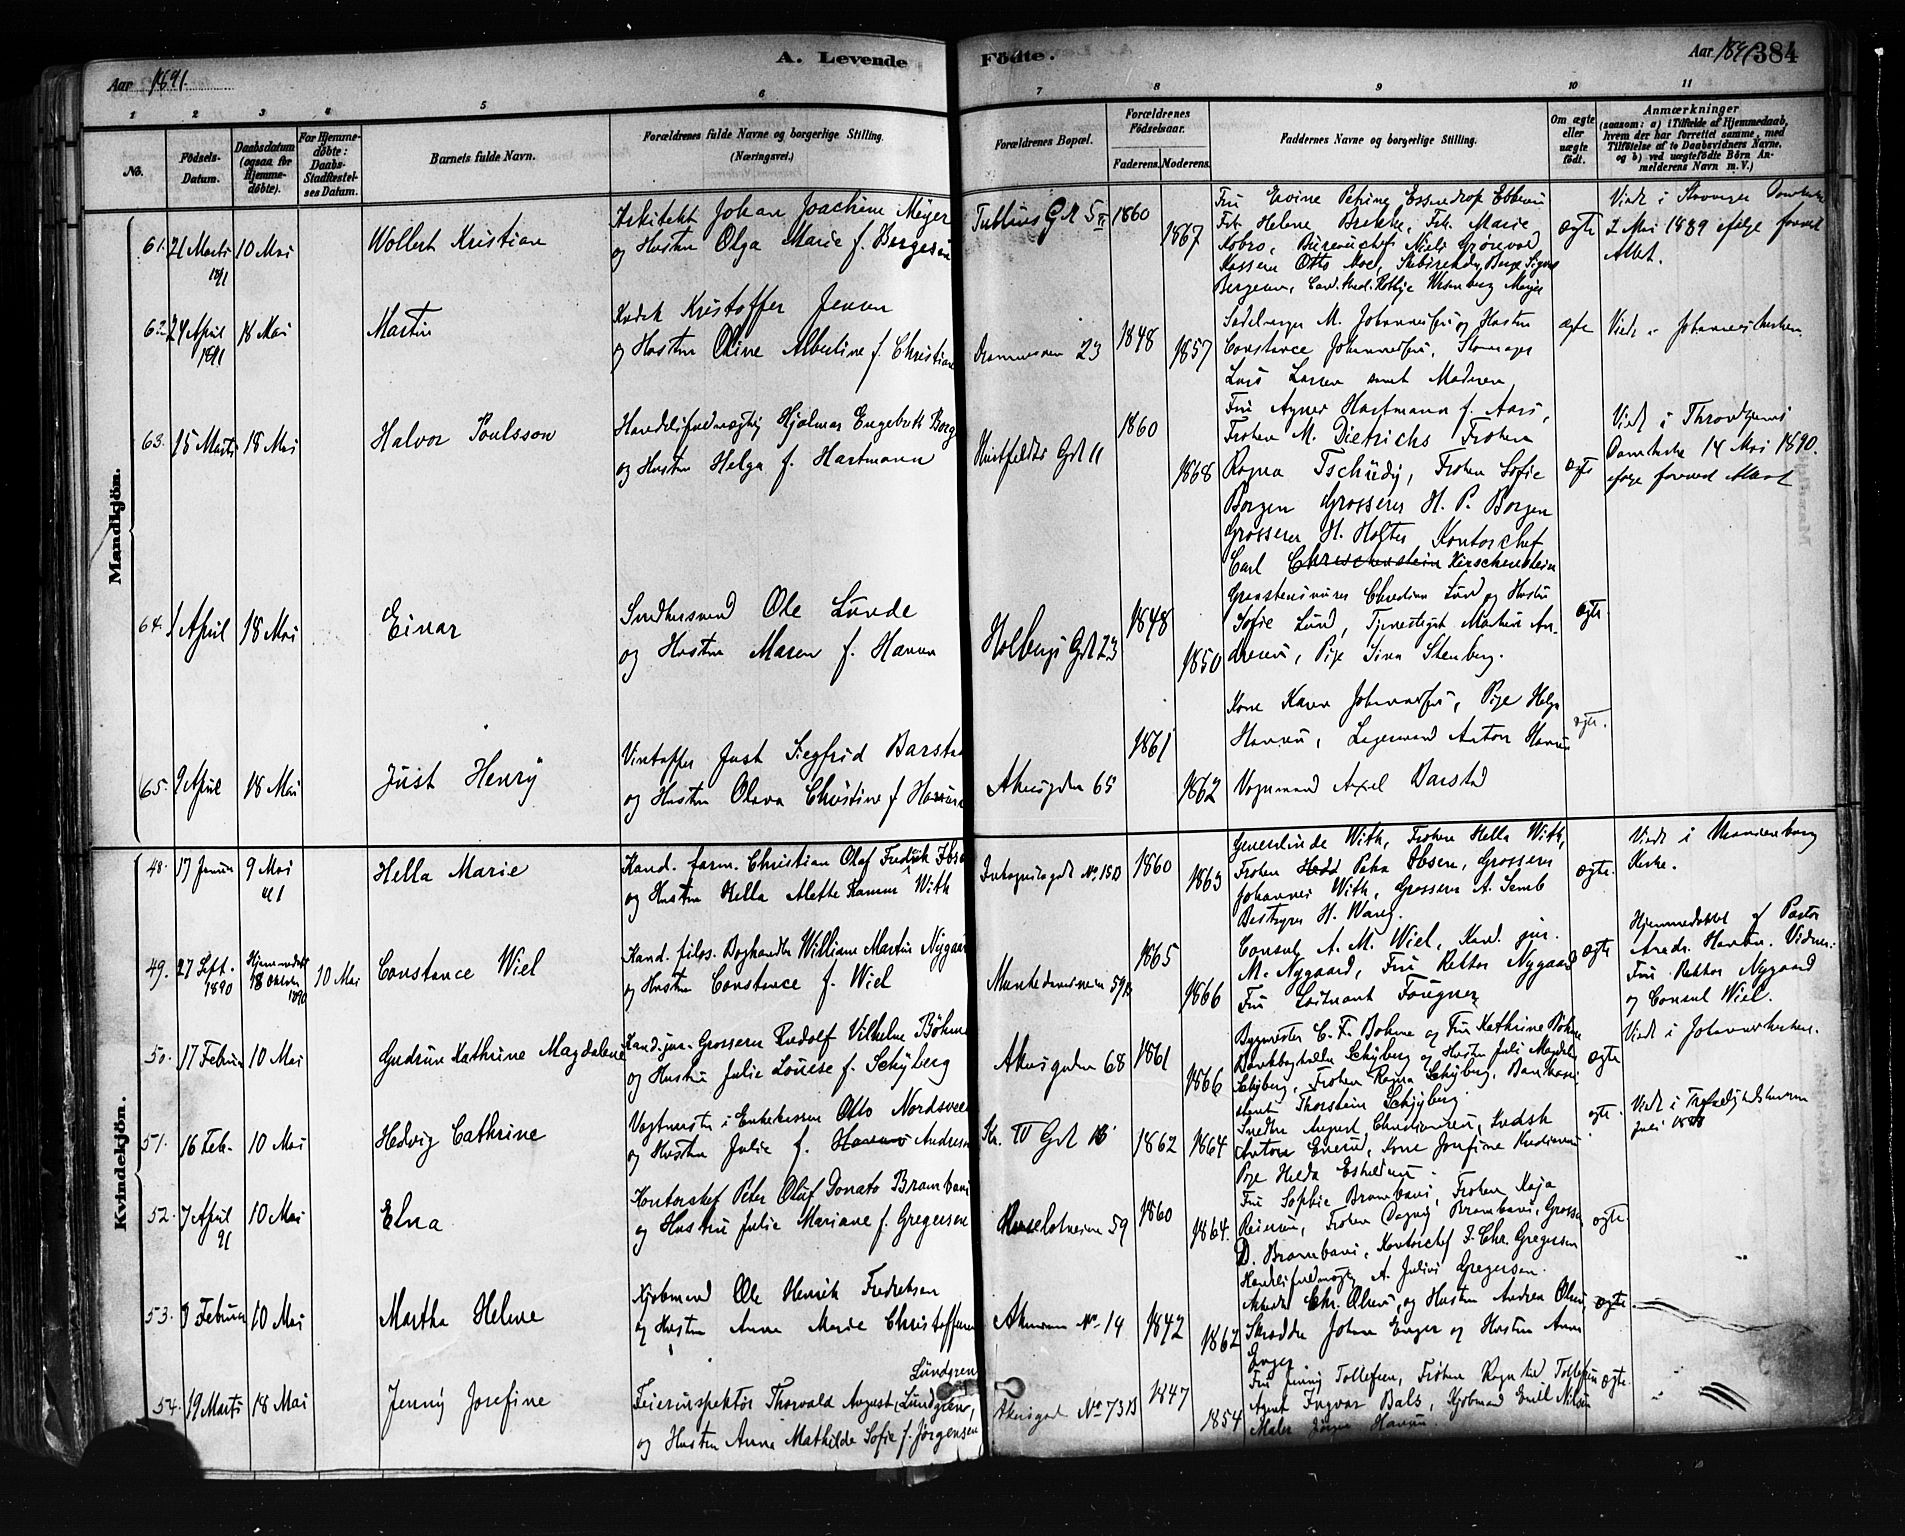 A. Levende Födte.
Aar 1891.
Aar 1891 384
1 2 3 4 5 6 7 8 9 10 11
No.
Födsels-Datum.
Daabsdatum (ogsaa for Hjemmedøbte).
For Hjemmedøbte: Daabs-Stadfæstelses Datum.
Barnets fulde Navn.
Forældrenes fulde Navne og borgerlige Stilling. (Næringsvei.)
Forældrenes Bopæl.
Forældrenes Födselsaar.
Faderens. Moderens.
Faddernes Navne og borgerlige Stilling.
Om ægte eller uægte födt.
Anmærkninger
(saasom: a) i Tilfælde af Hjemmedaab, hvem der har forrettet samme, med Tilføielse af to Daabsvidners Navne, og b) ved uægtefødte Börn Anmelderens Navn m. V.)
Mandkjön.
61. 21 Marts 1891 10 Mai
Wollert Kristian
Arkitekt Johan Joachim Meyer
og Hustru Olga Marie f. Bergesen
Tullins Gd 5 II 1860 1867
Helene Brekke, Frk. Marie
Kobro, Bureauchef Niels
Otto Moe
ægte
Viet i Stavanger Domkirke
2 Mai 1889 ifølge forevist
Attest.
62. 24 April 1891 18 Mai
Martin
Kusk Kristoffer Jensen
og Hustru Oline Albertine f. Christian
23 1848 1857
Sadelmager M. Johannesen og Hustru
Constance Johannesen,
Lars Larsen samt Moderen
ægte
Viet i Johanneskirken
63. 15 Marts 18 Mai
Halvor Poulsson
Handelsfuldmægtig Hjalmar Engebrett Borg
og Hustru Helga f. Hartmann
Huitfeldts Gd 11 1860 1868
Fru Agnes Hartmann f. Aars,
Frøken M. Dietrichs Frøken
Ragna Tschudy, Frøken Sofie
Borgen Grosserer H. P. Borgen
Grosserer H. Holter, Kontorchef
Carl Kirschenstein
ægte
Viet i Throndhjems
Domkirke 14 Mai 1890.
ifølge forevist Attest
64. 1 April 18 Mai
Einar
Ole Lunde
og Hustru Maren f. Hansen
Holbergs Gd 23 1848 1850
Christian Lund og Hustru
Sofie Lund, Tjenestepige Martine An-
dresen, Pige Sina Stenberg.
ægte
65. 9 April 18 Mai
Just Henry
Vintapper Just Siegfrid Barstad
og Hustru Olava Christine f. Hansen
Akersgaden 65 1861 1862
Kone Karen Johannesen, Pige Helga
Hansen, Lagermand Anton Hansen
Vognmand Axel Barstad
ægte.
Kvindekjön.
48. 17 Januar 9 Mai 91
Hella Marie
Kand. farm. Christian Olaf Fredrik Ibsen
og Hustru Hella Alette Ramm With
No. 15B 1860 1863
Generalinde With, Frøken Hella With,
Frøken Petra Ibsen, Grosserer
Johannes With, Grosserer A. Semb
Bestyrer H. Wang.
ægte.
Viet i
Kirke.
49. 27 Sept. 1890 Hjemmedøbt 18 Oktober 1890 10 Mai
Constance Wiel
Kand. filos. Boghandler William Martin Nygaard
og Hustru Constance f. Wiel
Munkedamsveien 59B 1865 1866
Consul A. M. Wiel, Kand. jur.
M. Nygaard, Fru Rektor Nygaard
Fru Løitnant Fougner
ægte
Hjemmedøbt af Pastor
Vidner:
Fru Rektor Nygaard
og Consul Wiel.
50. 17 Februar 10 Mai
Gudrun Kathrine Magdalene
Kand. jur. Grosserer Rudolf Vilhelm Bøhme
og Hustru Julie Louise f. Schyberg
Akersgaden 68 1861 1866
Bygmester C. F. Bøhme og Fru Kathrine Bøhme
Schyberg og Hustru Juli Magdale
Schyberg, Frøken Ragna Schyberg,
Thorstein Schyberg.
ægte
Viet i Johanneskirken.
51. 16 Feb. 10 Mai
Hedvig Cathrine
Vagtmester i Otto Nordsveen
og Hustru Julie f. Andresen
1862 1864
Snedker August Christiansen, Snedsk
Anton Enerud, Kone Josefine Kristiansen
Pige Hilda
ægte.
Viet i Trefoldighedskirken
Juli 1888
52. 7 April 91 10 Mai
Elna
Kontorchef Peter Oluf Donato Brambani
og Hustru Julie Mariane f. Gregersen
59 1860 1864.
Fru Sophie Brambani, Frøken Kaja
Reiersen, Frøken Dagny Brambani, Grosser
D. Brambani, Kontorchef I. Chr. Gregersen
Handelsfuldmægtig A. Julius Gregersen.
ægte.
53. 8 Februar 10 Mai
Martha Helene
Kjøbmand Ole Henrik Fredriksen
og Hustru Anna Marie Christoffersen
No. 14 1842 1862
Chr. Olsen, og Hustru Andrea Olsen
Skrædder Johan Enger og Hustru Anna
Enger
ægte.
54. 19 Marts 18 Mai
Jenny Josefine
Lundgren
Feierinspektør Thorvald August Lundgrens,
og Hustru Anna Mathilde Sofie f. Jørgensen
Akersgad No 73B 1847 1854
Fru Jenny Tollefsen, Frøken Ragnhild Tollefsen
Agent Ingvar Bals, Kjøbmand Emil Nilsen
Maler Jørgen Hansen.
ægte.